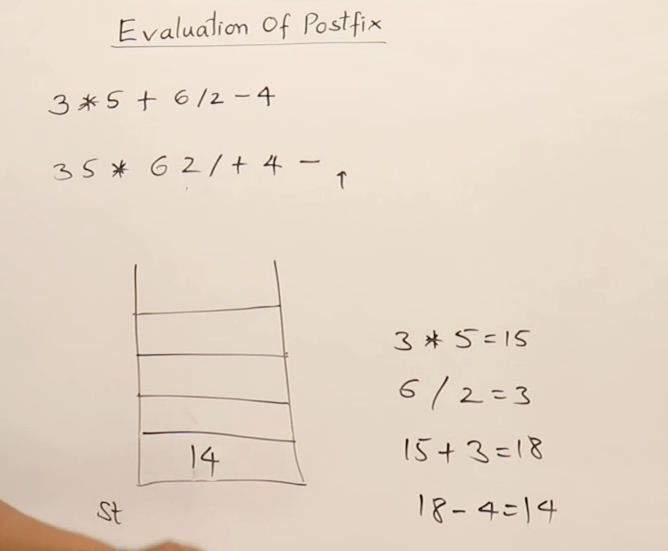 Evaluation Of Postfix
3 * 5 + 6 / 2 - 4
3 5 * 6 2 / + 4 -
14
St
3 * 5 = 15
6 / 2 = 3
15 + 3 = 18
18 - 4 = 14